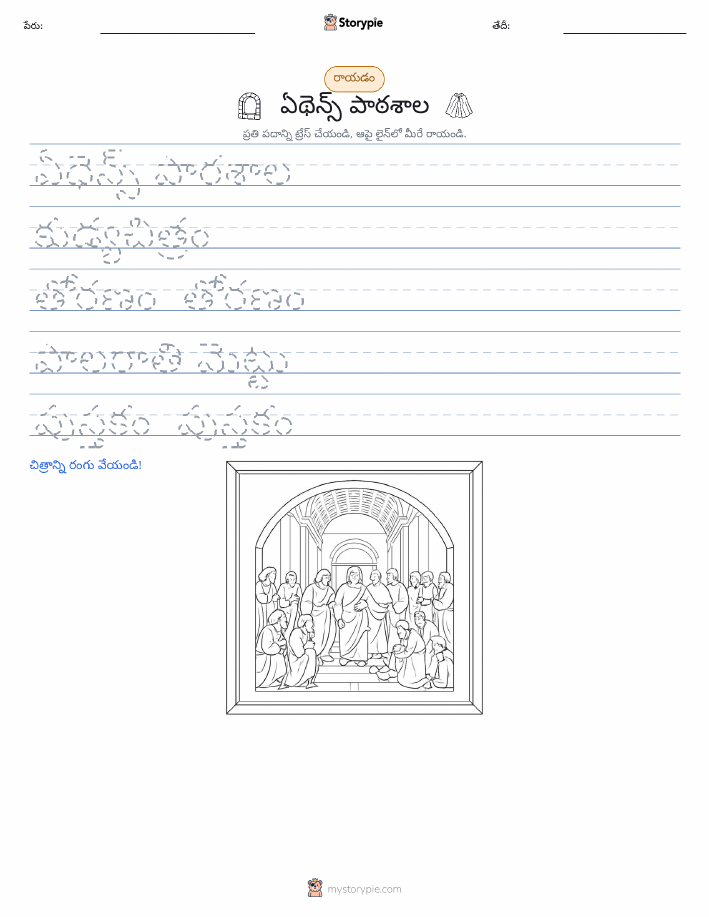 పేరు: Storypie తేదీ:
రాయడం
ఏథెన్స్ పాఠశాల
ప్రతి పదాన్ని ట్రేస్ చేయండి, ఆపై లైన్‌లో మీరే రాయండి.
ఏథెన్స్ పాఠశాల
కుడ్యచిత్రం
తోరణం తోరణం
పాలరాతి మెట్లు
పుస్తకం పుస్తకం
చిత్రాన్ని రంగు వేయండి!
mystorypie.com